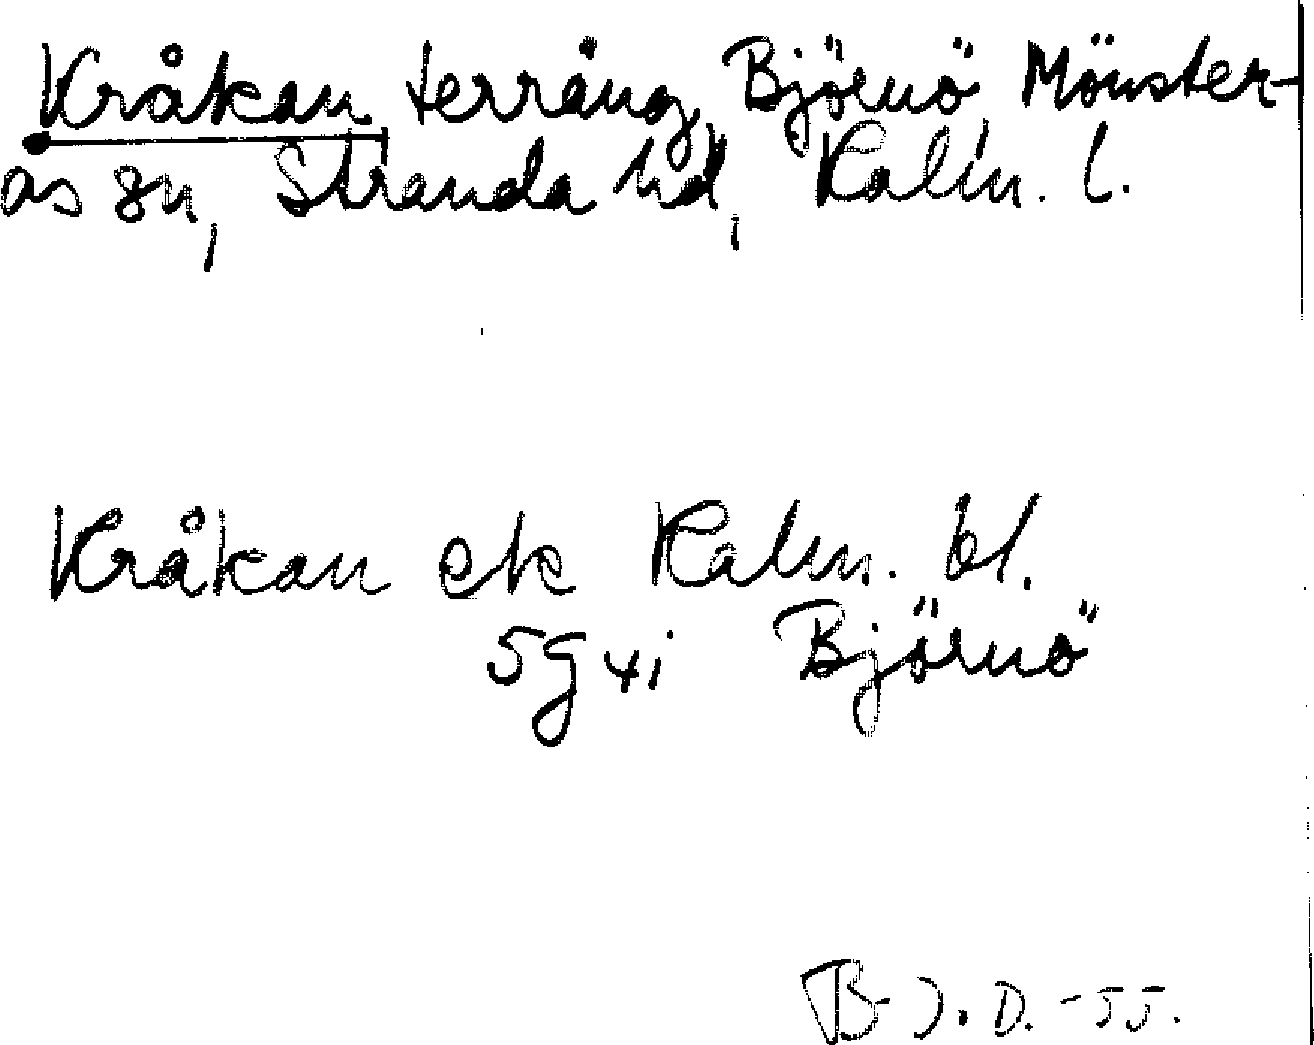 Kråkan terräng, Björnö Mönster-
ås sn, Stranda hd, Kalm. l.
Kråkan ek Kalm. bl.
5g xi Björnö
B-J. D. -55.